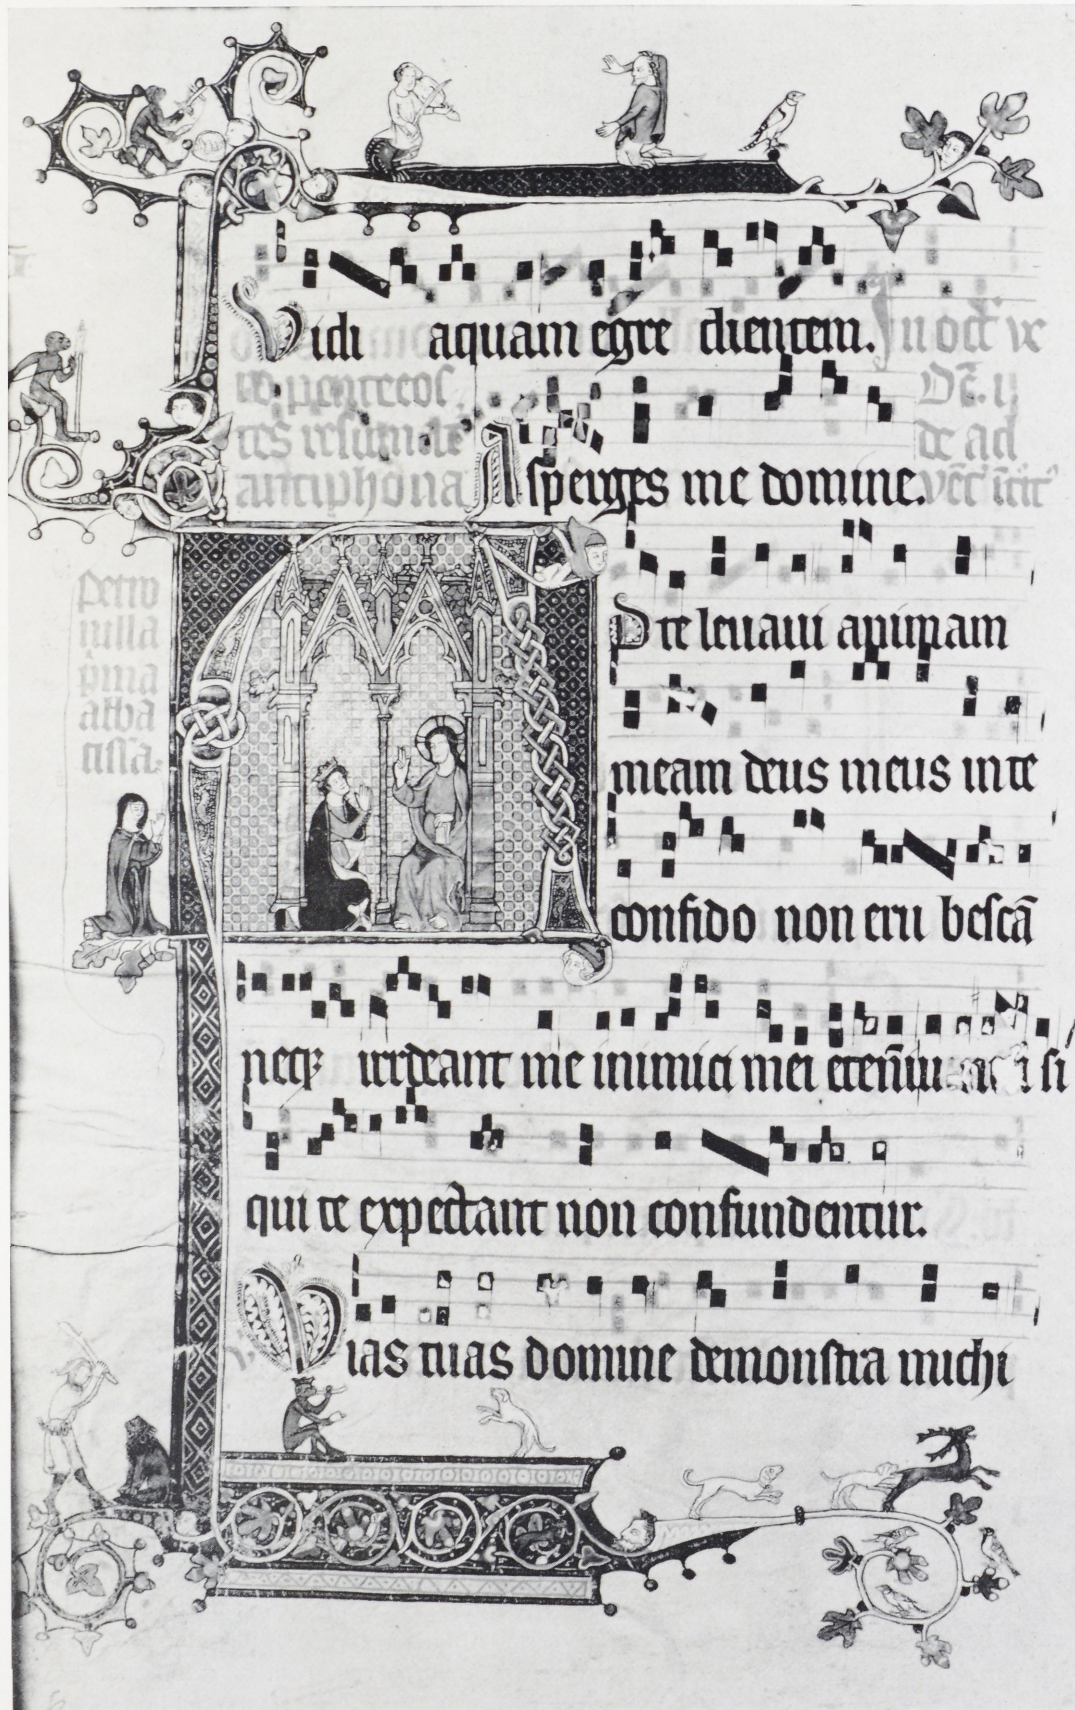 Vidi aquam egre dientem. In oct̄
Asperges me domine.
antiphona
Petro
nilla
p̄ma
abba
tissa.
Ad te leuaui animam
meam deus meus in te
confido non eru bescā
neqꝫ irrideant me inimici mei etenim si
qui te expectant non confundentur.
Vias tuas domine demonstra michi